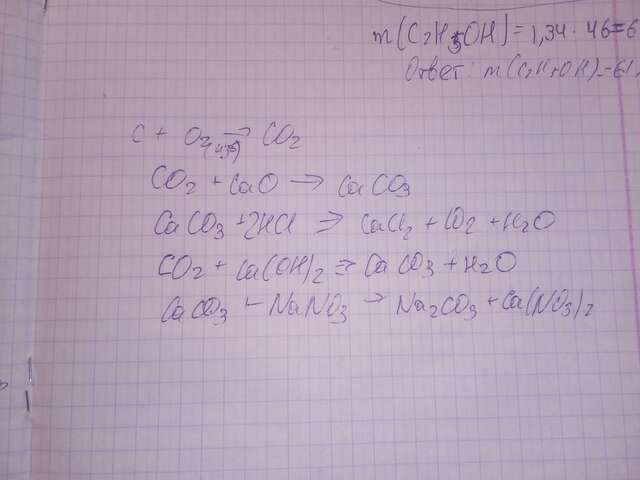 m(C₂H₅OH)=1,34·46=6
Ответ: m(C₂H₅OH)=61,
C + O₂(изб) → CO₂
CO₂ + CaO → CaCO₃
CaCO₃ + 2HCl → CaCl₂ + CO₂ + H₂O
CO₂ + Ca(OH)₂ → CaCO₃ + H₂O
CaCO₃ + NaNO₃ → Na₂CO₃ + Ca(NO₃)₂